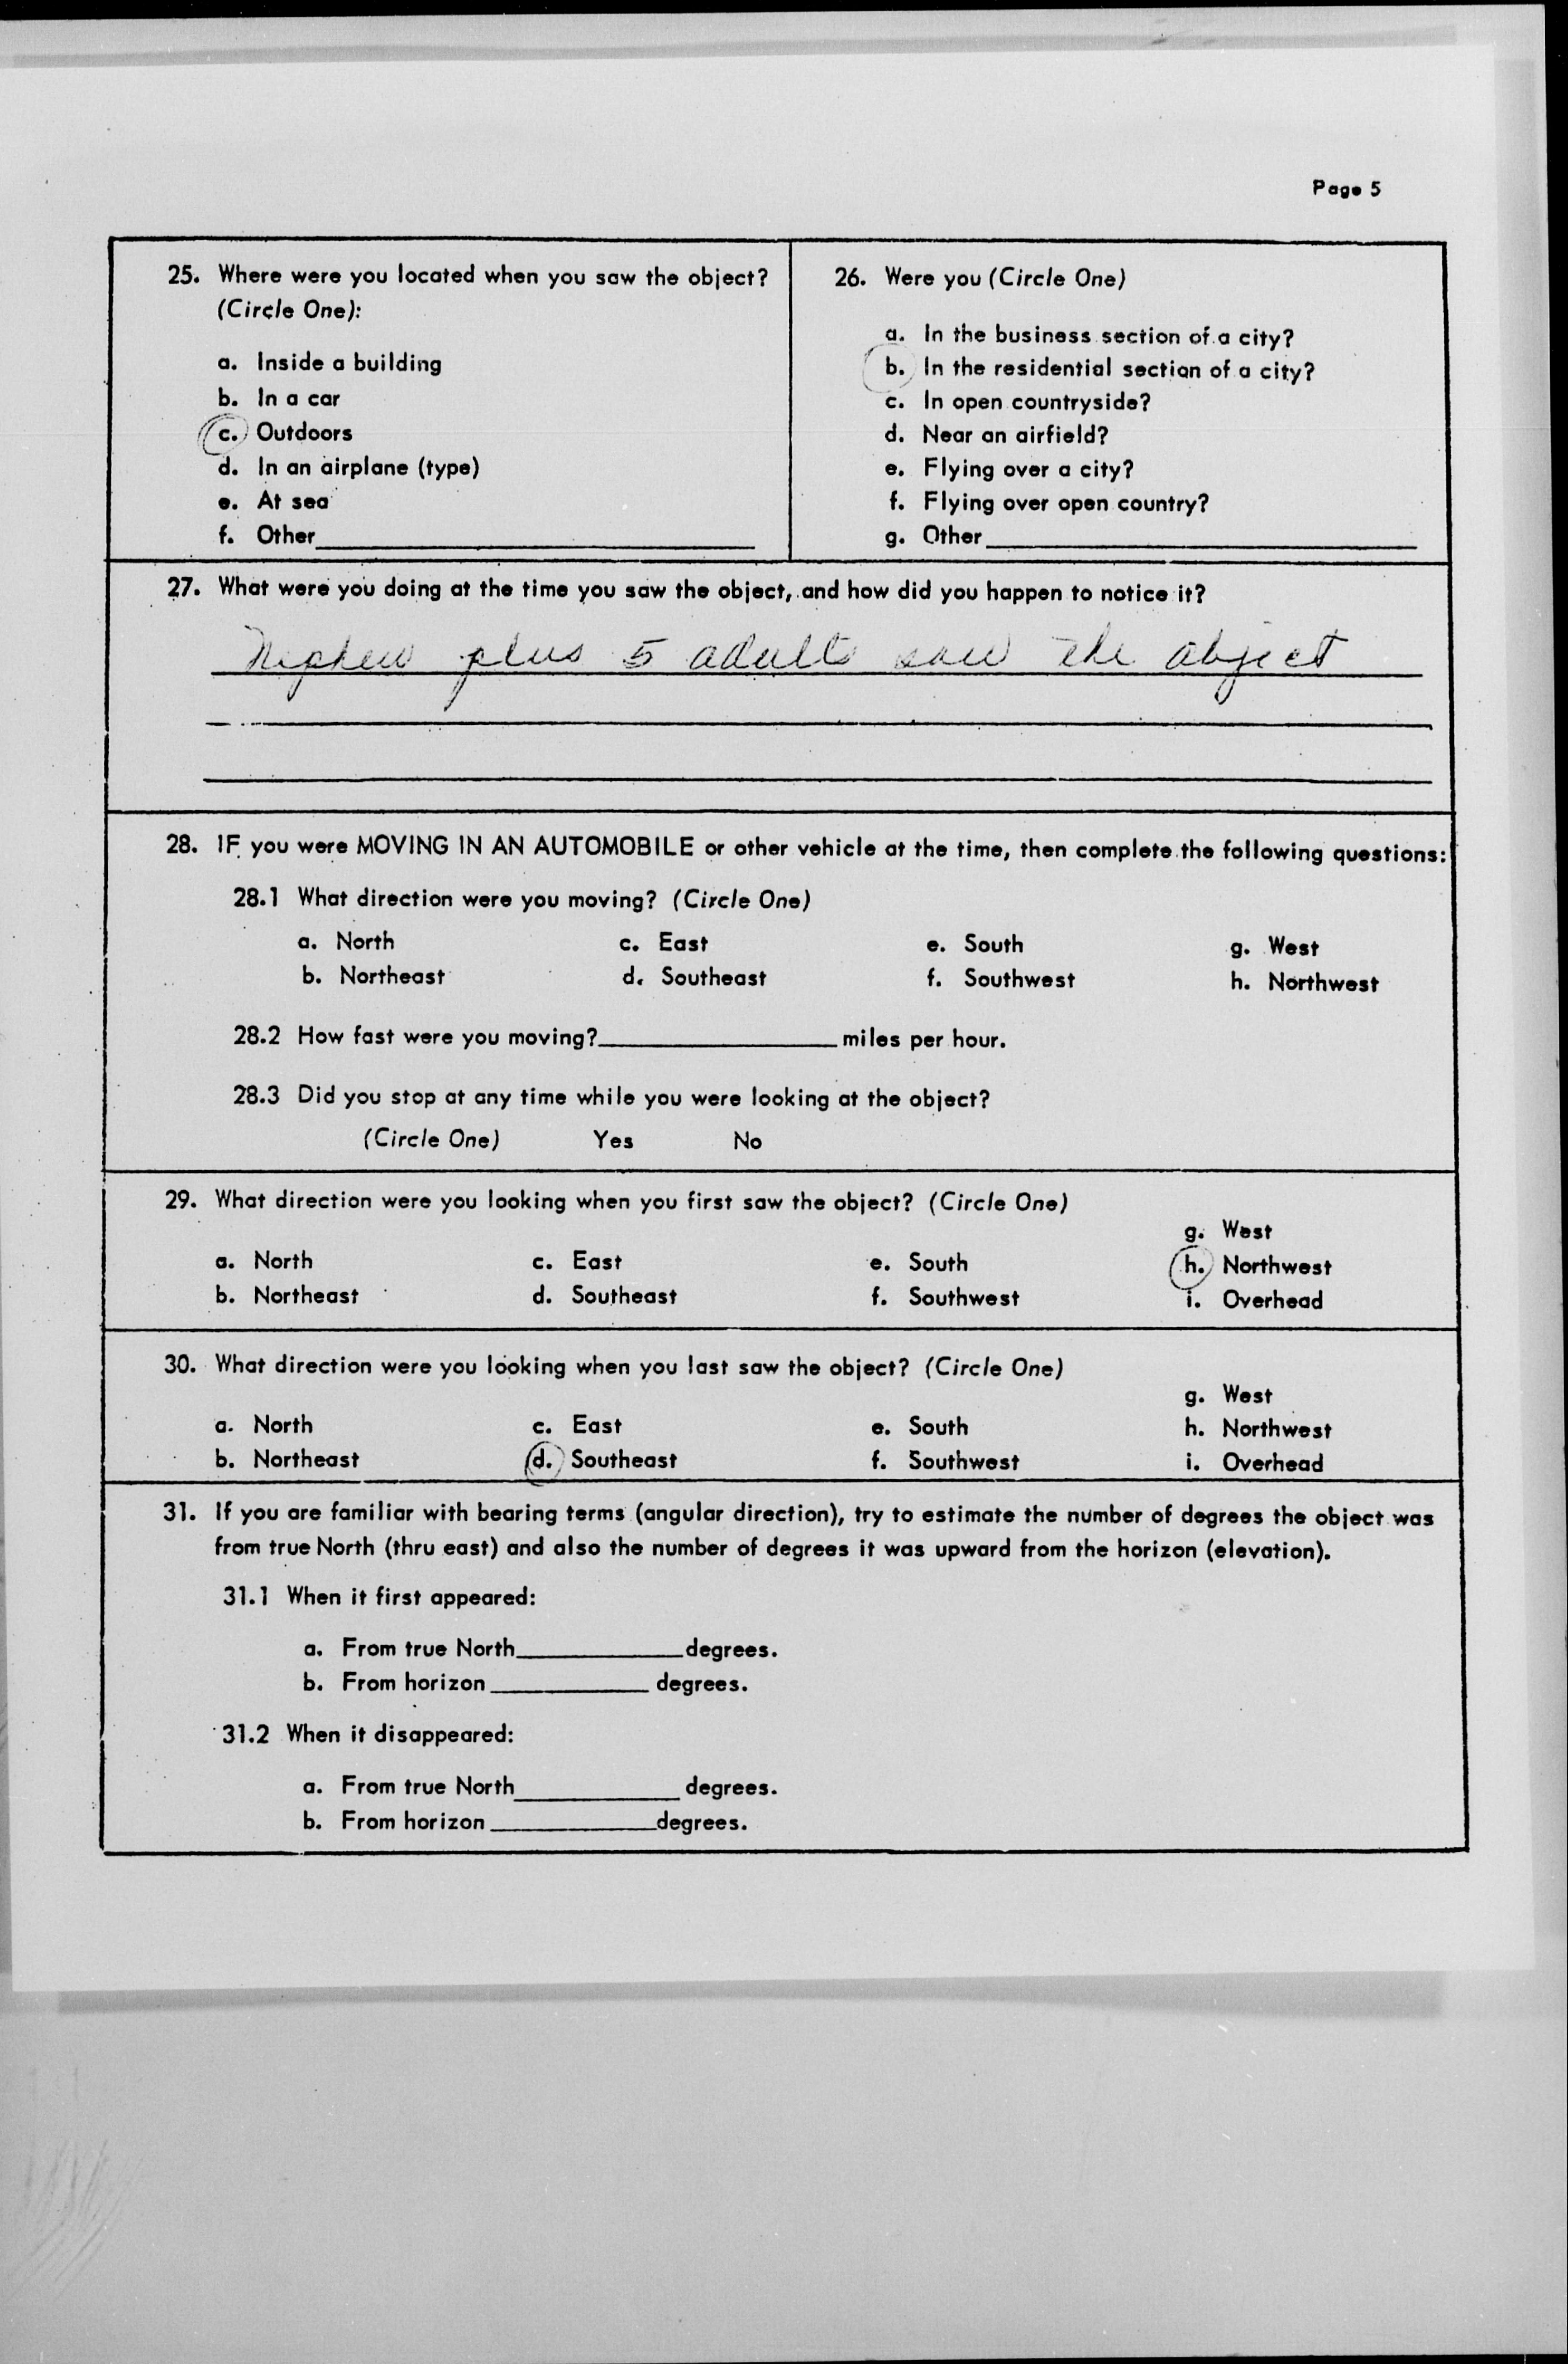 Page 5
25. Where were you located when you saw the object?
(Circle One):
a. Inside a building
b. In a car
c. Outdoors
d. In an airplane (type)
e. At sea
f. Other
26. Were you (Circle One)
a. In the business section of a city?
b. In the residential section of a city?
c. In open countryside?
d. Near an airfield?
e. Flying over a city?
f. Flying over open country?
g. Other
27. What were you doing at the time you saw the object, and how did you happen to notice it?
Nephew plus 5 adults saw the object
28. IF you were MOVING IN AN AUTOMOBILE or other vehicle at the time, then complete the following questions:
28.1 What direction were you moving? (Circle One)
a. North c. East e. South g. West
b. Northeast d. Southeast f. Southwest h. Northwest
28.2 How fast were you moving? miles per hour.
28.3 Did you stop at any time while you were looking at the object?
(Circle One) Yes No
29. What direction were you looking when you first saw the object? (Circle One)
g. West
a. North c. East e. South h. Northwest
b. Northeast d. Southeast f. Southwest i. Overhead
30. What direction were you looking when you last saw the object? (Circle One)
g. West
a. North c. East e. South h. Northwest
b. Northeast d. Southeast f. Southwest i. Overhead
31. If you are familiar with bearing terms (angular direction), try to estimate the number of degrees the object was
from true North (thru east) and also the number of degrees it was upward from the horizon (elevation).
31.1 When it first appeared:
a. From true North degrees.
b. From horizon degrees.
31.2 When it disappeared:
a. From true North degrees.
b. From horizon degrees.